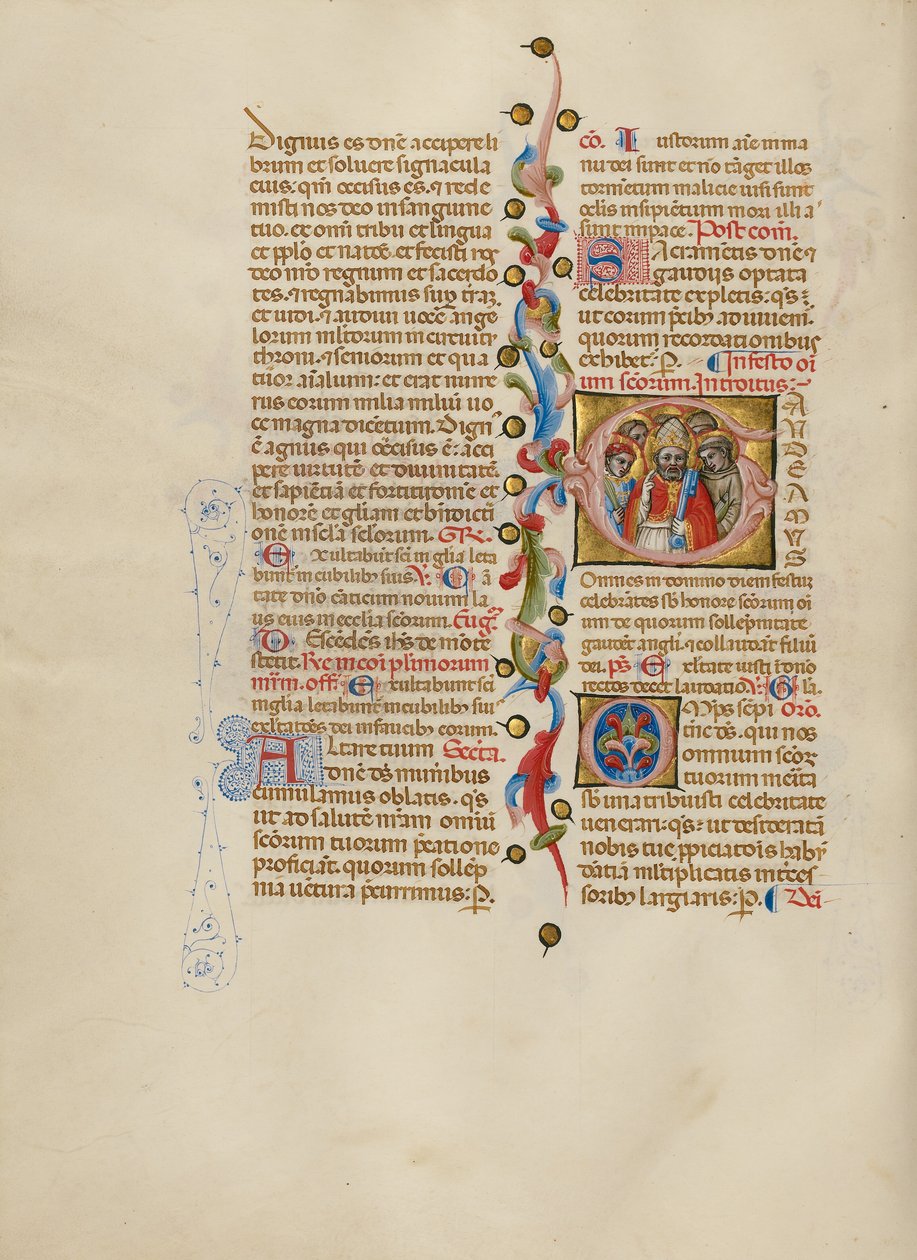 Dignus es dñe accipere li
brum et soluere signacula
eius: qm̃ occisus es. ⁊ rede
misti nos deo in sanguine
tuo. ex omi tribu et lingua
et pplo et natõe. et fecisti nos
deo nr̃o regnum et sacerdo
tes. ⁊ regnabimus sup trã.
et uidi. ⁊ audiui uocẽ ange
lorum multorum in circuitu
throni. ⁊ seniorum et qua
tuor aĩalium: et erat nume
rus eorum milia miliũ uo
ce magna dicẽtium. Dign᾽
ẽ agnus qui occisus ẽ: acci
pere uirtutẽ et diuinitatẽ
et sapiẽtiã et fortitudinẽ et
honorẽ et gliam et bñdicti
onẽ in scła scłorum. GR.
Exultabũt sci in glia leta
bunt̃ in cubilib᷒ suis. V̓. Cã
tate dño cãticum nouum la
us eius in ecclia scõrum. Eug᷒
Descẽdẽs ihs de mõte
stetit. Re in coĩ plimorum
mr̃m. off. Exultabunt sci
in glia letabunt̃ in cubilib᷒ sui᷒
exłtatões dei in faucib᷒ eorum.
Altare tuum Secta.
dõne dš munẽribus
cumulamus oblatis. q̃s
ut ad salutẽ nr̃am omniũ
scõrum tuorum p̃catione
proficiãt. quorum sollẽp
nia uẽtura p̃currimus: P.
cõ. Iustorum aĩe in ma
nu dei sunt et nõ tãget illos
tormẽtum malicie uisi sunt
oc̃lis insipiẽtium mori illi a᷒
sunt in pace. Post com̃.
Sacri mẽtis dõne ⁊
gaudiis optata
celebritate expletis: q̃s:
ut eorum p̃cib᷒ adiuuem᷒.
quorum recordationibus
exhibet᷒: P. In festo oĩ
um scõrum. Introitus:
GAUDEAMUS
Omnes in domino diem festuʒ
celebrãtes sb̃ honore scõrum oĩ
um de quorum sollẽpnitate
gaudẽt angłi. ⁊ collaudãt filiũ
dei. p̃s Exłtate iusti ĩ dño
rectos decet laudatio. V̓. Gla.
Omips sẽpi Orõ.
tne dš. qui nos
omnium scõr
tuorum mẽita
sb̃ una tribuisti celebritate
uenerari: q̃s: ut desideratã
nobis tue p̃piciatõis habũ
dãtiã mltiplicatis int̃ces
sorib᷒ largiaris: P. Dei